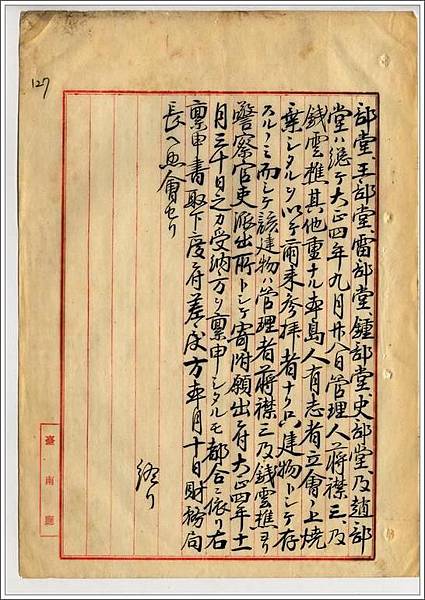 127
部堂、王部堂、雷部堂、鍾部堂、史部堂、及趙部
堂ハ総テ大正四年九月廿八日管理人蔣襟三、及
錢雲樵其他重ナル本島人有志者立會ノ上焼
棄シタルヲ以テ爾来参拝者ナク只建物トシテ存
スルノミ而シテ該建物ハ管理者蔣襟三及錢雲樵ヨリ
警察官吏派出所トシテ寄附願出ニ付大正四年十一
月三十日之カ受納方ヲ稟申シタルモ都合ニ依リ右
稟申書取下度ニ付差戻方本年月十日財務局
長ヘ照會セリ
終リ
臺南廳